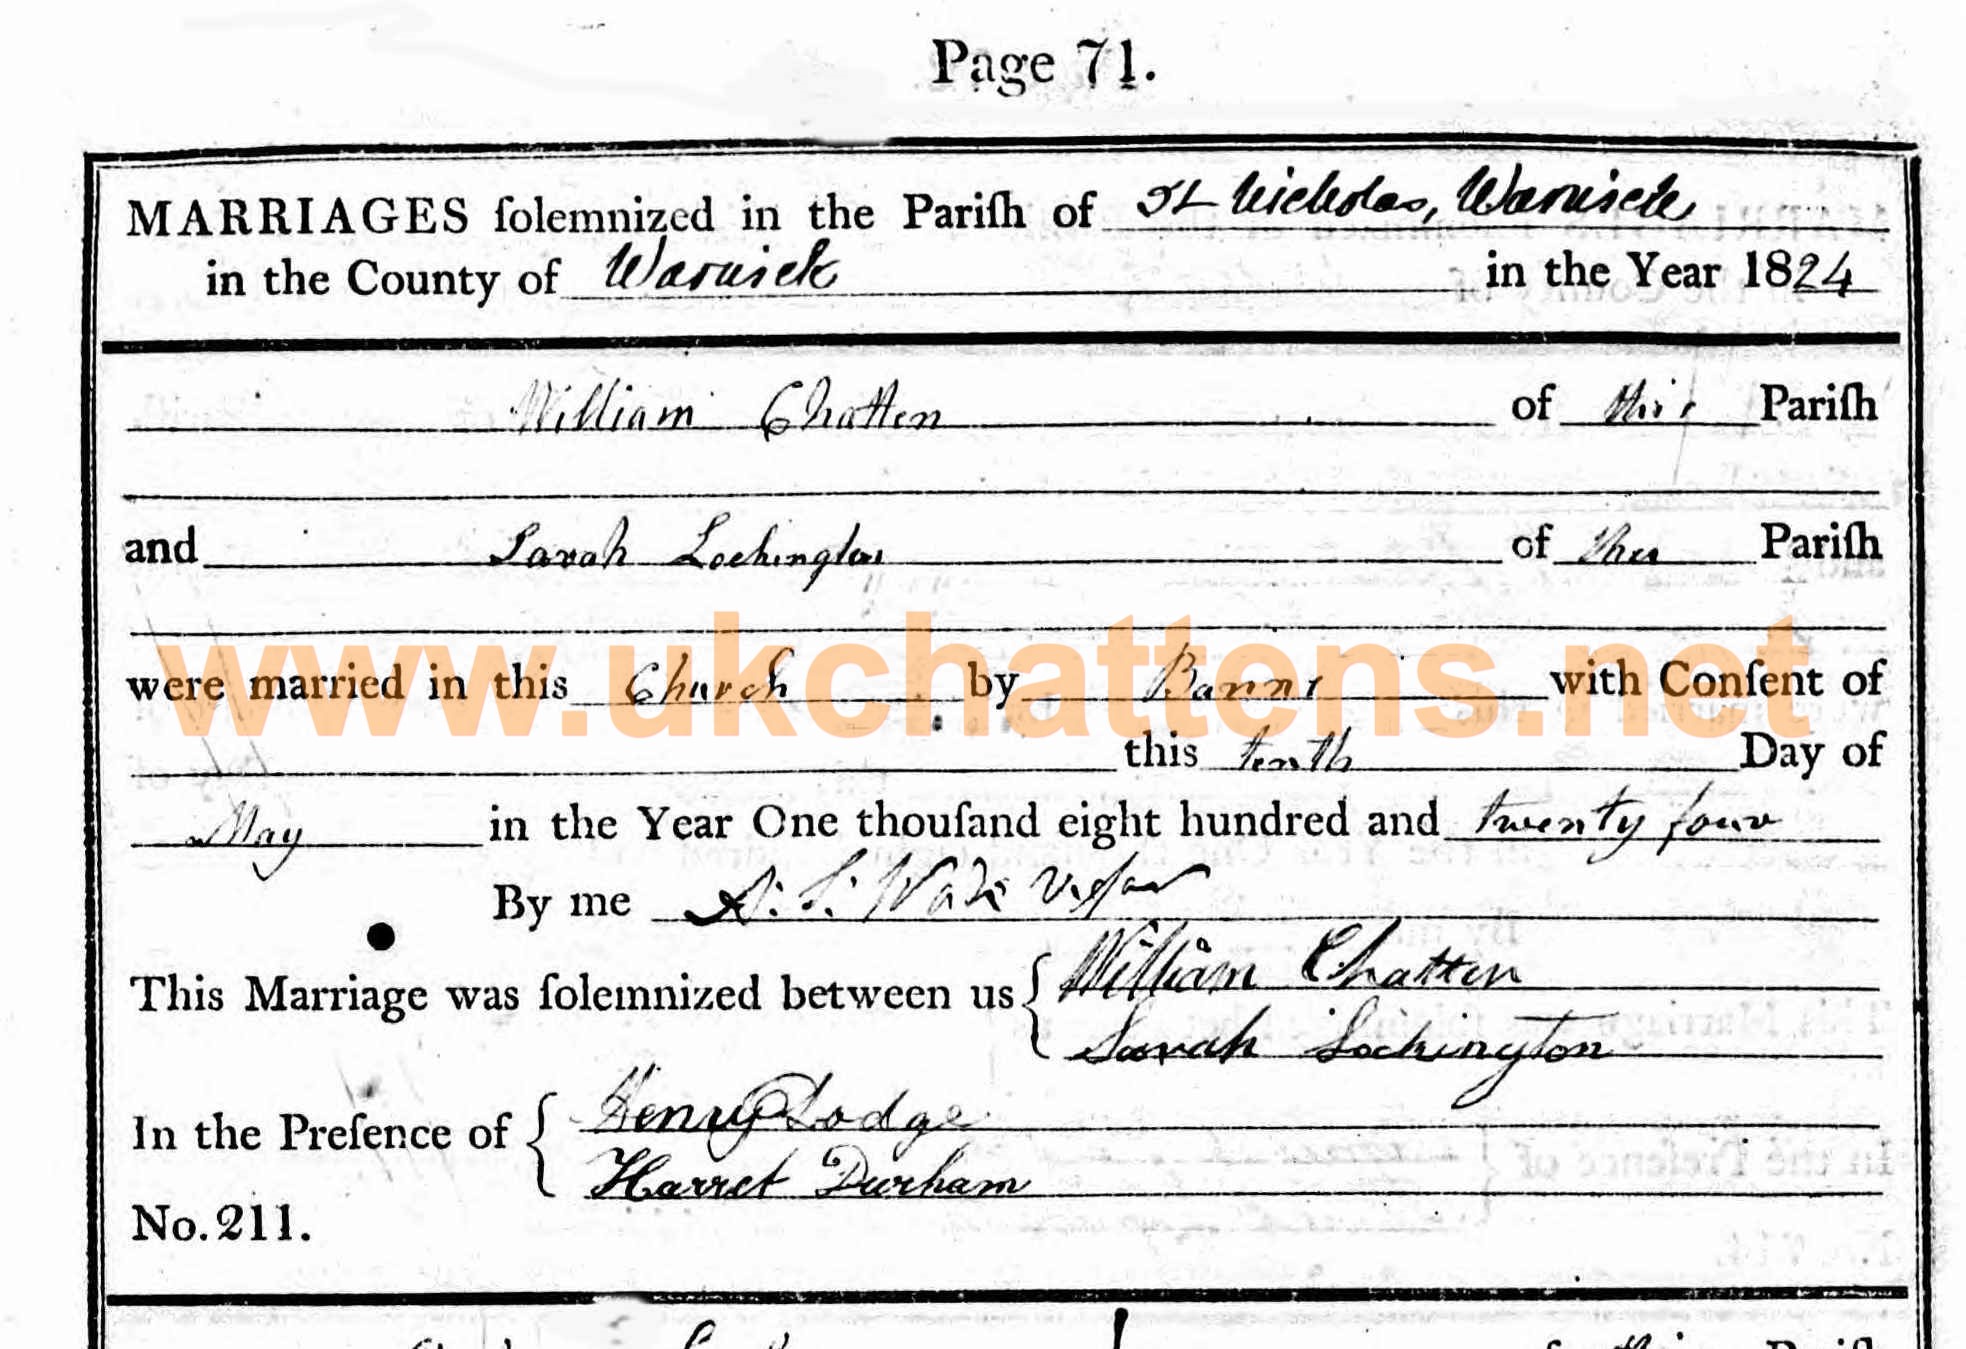 Page 71.
MARRIAGES ſolemnized in the Pariſh of St Nicholas, Warwick
in the County of Warwick in the Year 1824
William Chatten of this Pariſh
and Sarah Lockington of this Pariſh
www.ukchattens.net
were married in this Church by Banns with Conſent of
this tenth Day of
May in the Year One thouſand eight hundred and twenty four
By me
This Marriage was ſolemnized between us { William Chatten
Sarah Lockington
In the Preſence of { Henry Lodge
Harret Durham
No. 211.